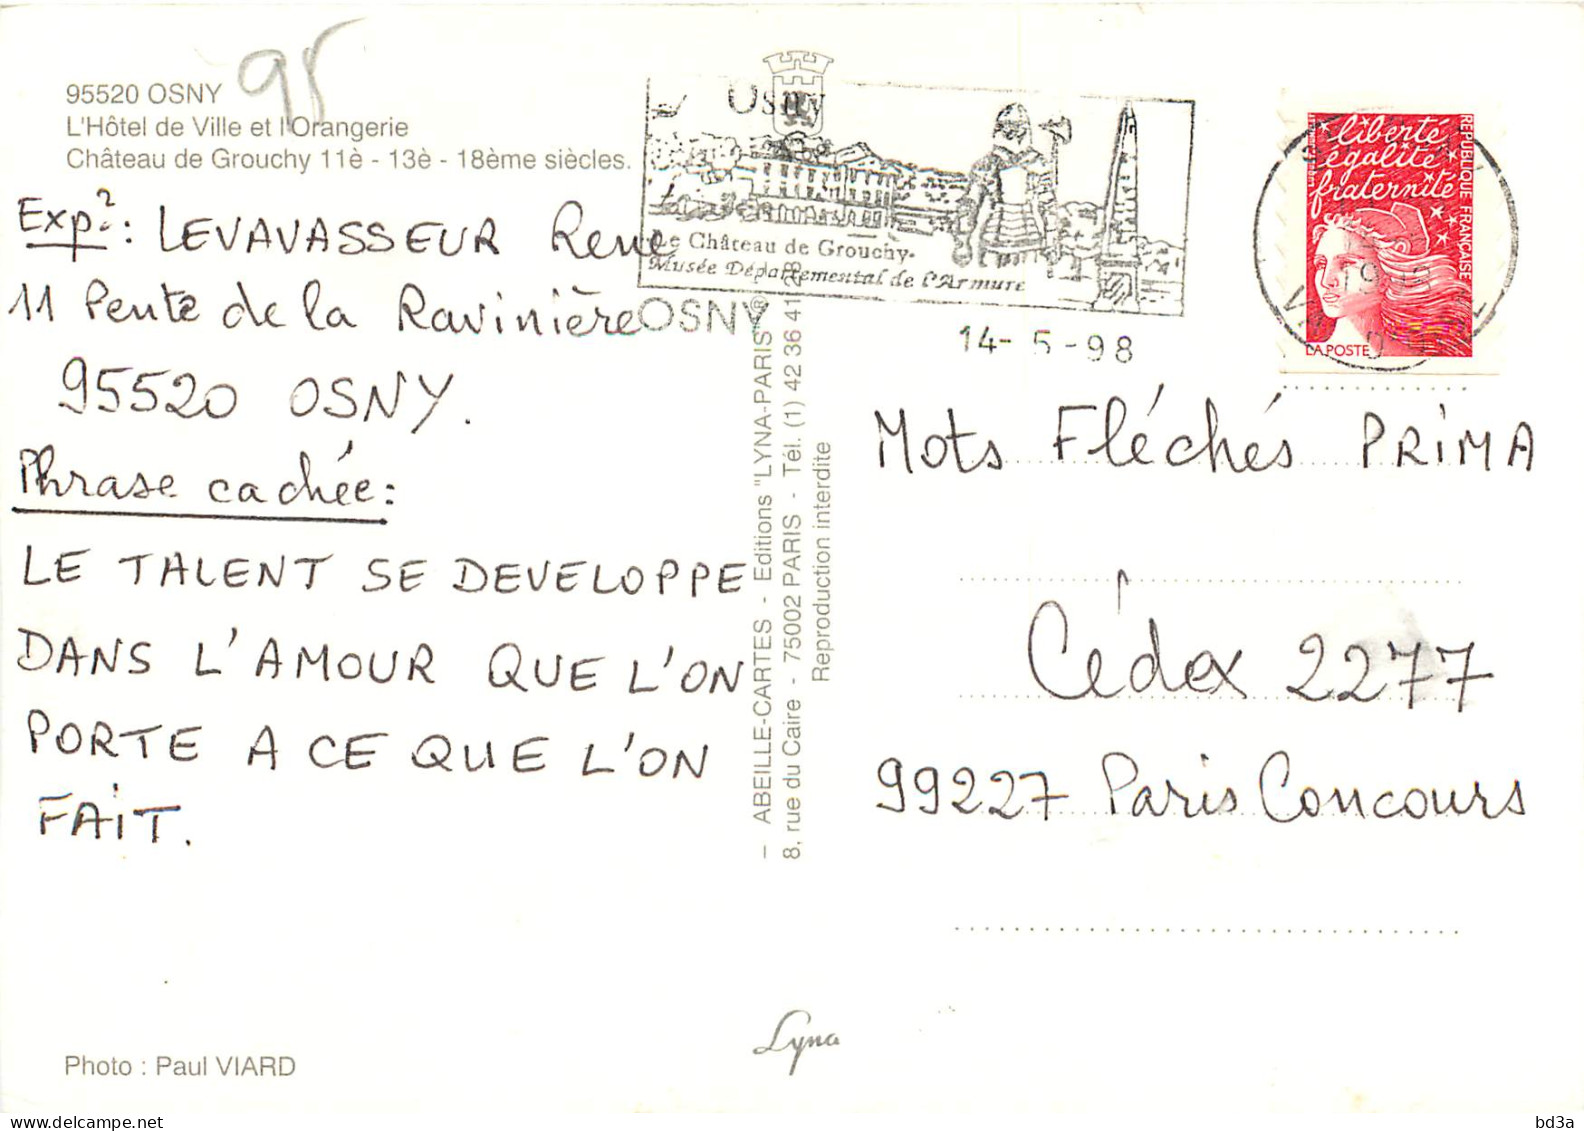 95520 OSNY
L'Hôtel de Ville et l'Orangerie
Château de Grouchy 11è - 13è - 18ème siècles.
95
Exp?: LEVAVASSEUR René
11 Pente de la Ravinière
95520 OSNY.
Phrase cachée:
LE TALENT SE DEVELOPPE
DANS L'AMOUR QUE L'ON
PORTE A CE QUE L'ON
FAIT.
Photo : Paul VIARD
Osny
Le Château de Grouchy.
Musée Départemental de l'Armure
OSNY
14-5-98
– ABEILLE-CARTES - Editions "LYNA-PARIS"®
8, rue du Caire - 75002 PARIS - Tél. (1) 42 36 41 28
Reproduction interdite
Lyna
liberté
égalité
fraternité
REPUBLIQUE FRANÇAISE
LA POSTE
Mots Fléchés PRiMA
Cédex 2277
99227 Paris Concours
bd3a